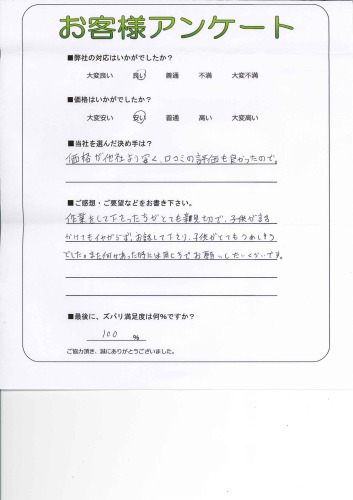 お客様アンケート
■弊社の対応はいかがでしたか？
大変良い 良い 普通 不満 大変不満
■価格はいかがでしたか？
大変安い 安い 普通 高い 大変高い
■当社を選んだ決め手は？
価格が他社より安く、口コミの評価も良かったので。
■ご感想・ご要望などをお書き下さい。
作業をして下さった方がとても親切で、子供が話
かけてもイヤがらず、お話して下さり、子供がとてもうれしそう
でした。また何かあった時には同じ方でお願いしたいくらいです。
■最後に、ズバリ満足度は何％ですか？
100 %
ご協力頂き、誠にありがとうございました。